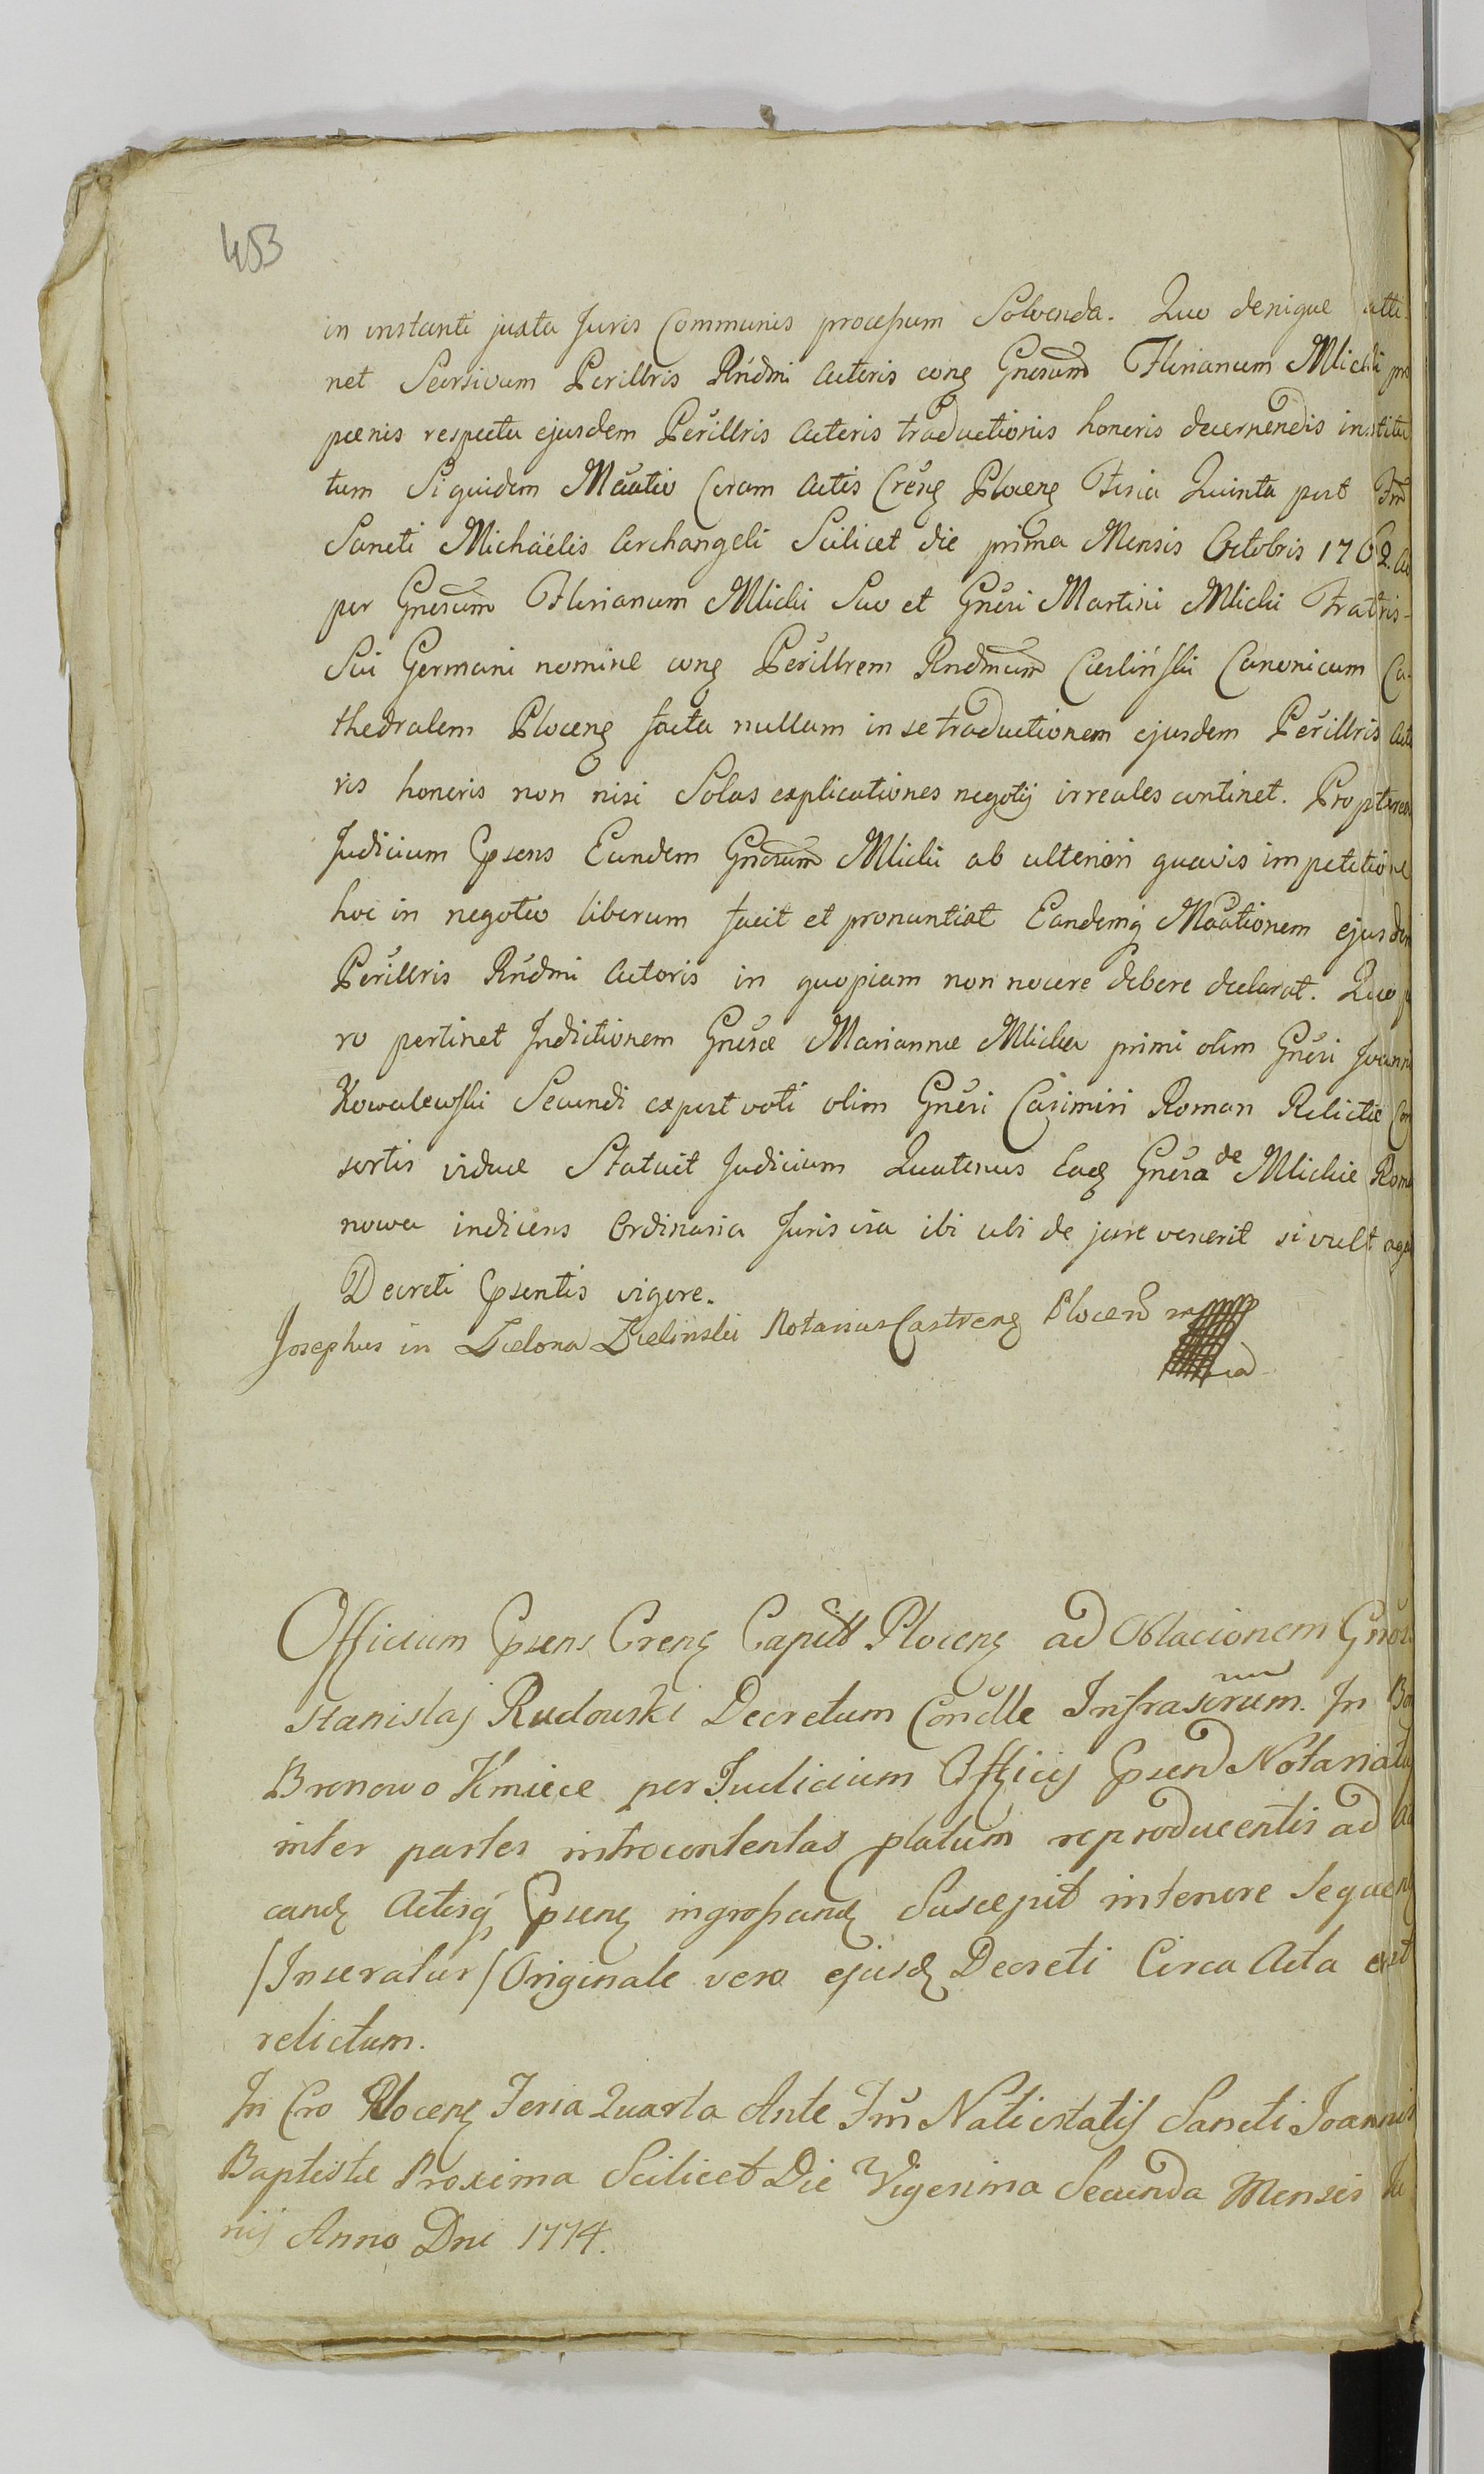 453
in instanti juxta Juris Communis processum Solvenda. Quo denique atti-
net Seorsivum Perillris Rńdmi Actoris cong Gnosum Florianum Mlicki pro
pœnis respectu ejusdem Perillris Actoris traductionis honoris decernendis institu
tum Siquidem Mãatio Coram Actis Creng Ploceng Feria Quinta post Fm
Sancti Michäelis Archangeli Scilicet die prima Mensis Octobris 1762 Ao
per Gnosum Florianum Mlicki Suo et Gnosi Martini Mlicki Fratris-
Sui Germani nomine cong Perillrem Rndmum Cieślińſki Canonicum Ca-
thedralem Ploceng facta nullam in se traductionem ejusdem Perillris Acto
ris honoris non nisi Solas explicationes negotij irreales continet. Propterea
Judicium Ppsens Eundem Gnosum Mlicki ab ulteriori quavis impetitione
hoc in negotio liberum facit et pronuntiat Eandemq Mãationem ejusdem
Perillris Rńdmi Actoris in quopiam non nocere debere declarat. Quo p
ro pertinet Indictionem Gnosæ Mariannæ Mlicka primi olim Gnosi Joann
Kowalewſki Secundi expost voti olim Gnosi Casimiri Roman Relictæ Con
sortis viduæ Statuit Judicium Quatenus Eadg Gnosa de Mlickie Roma
nowa indicens Ordinaria Juris via ibi ubi de jure venerit si vult agat
Decreti Ppsentis vigore.
Josephus in Zielona Zielinski Notarius Castreng Plocen mp
Officium Ppsens Creng Capitt Ploceng ad Oblacionem Gnosi
Stanislaj Rudowski Decretum Condlle Infrascrum. In Bo
Bronowo Kmiece per Judicium Officij Ppsen Notariatg
inter partes introcontentas platum reproducentis ad
cand Actisq Ppseng ingrossand Suscepit in tenore Sequeng
/Inseratur/ Originale vero ejusd Decreti Circa Acta est
relictum.
In Cro Ploceng Feria Quarta Ante Fm Nativitatis Sancti Joannis
Baptistæ Proxima Scilicet Die Vigesima Secunda Mensis Ju
nij Anno Dni 1774.